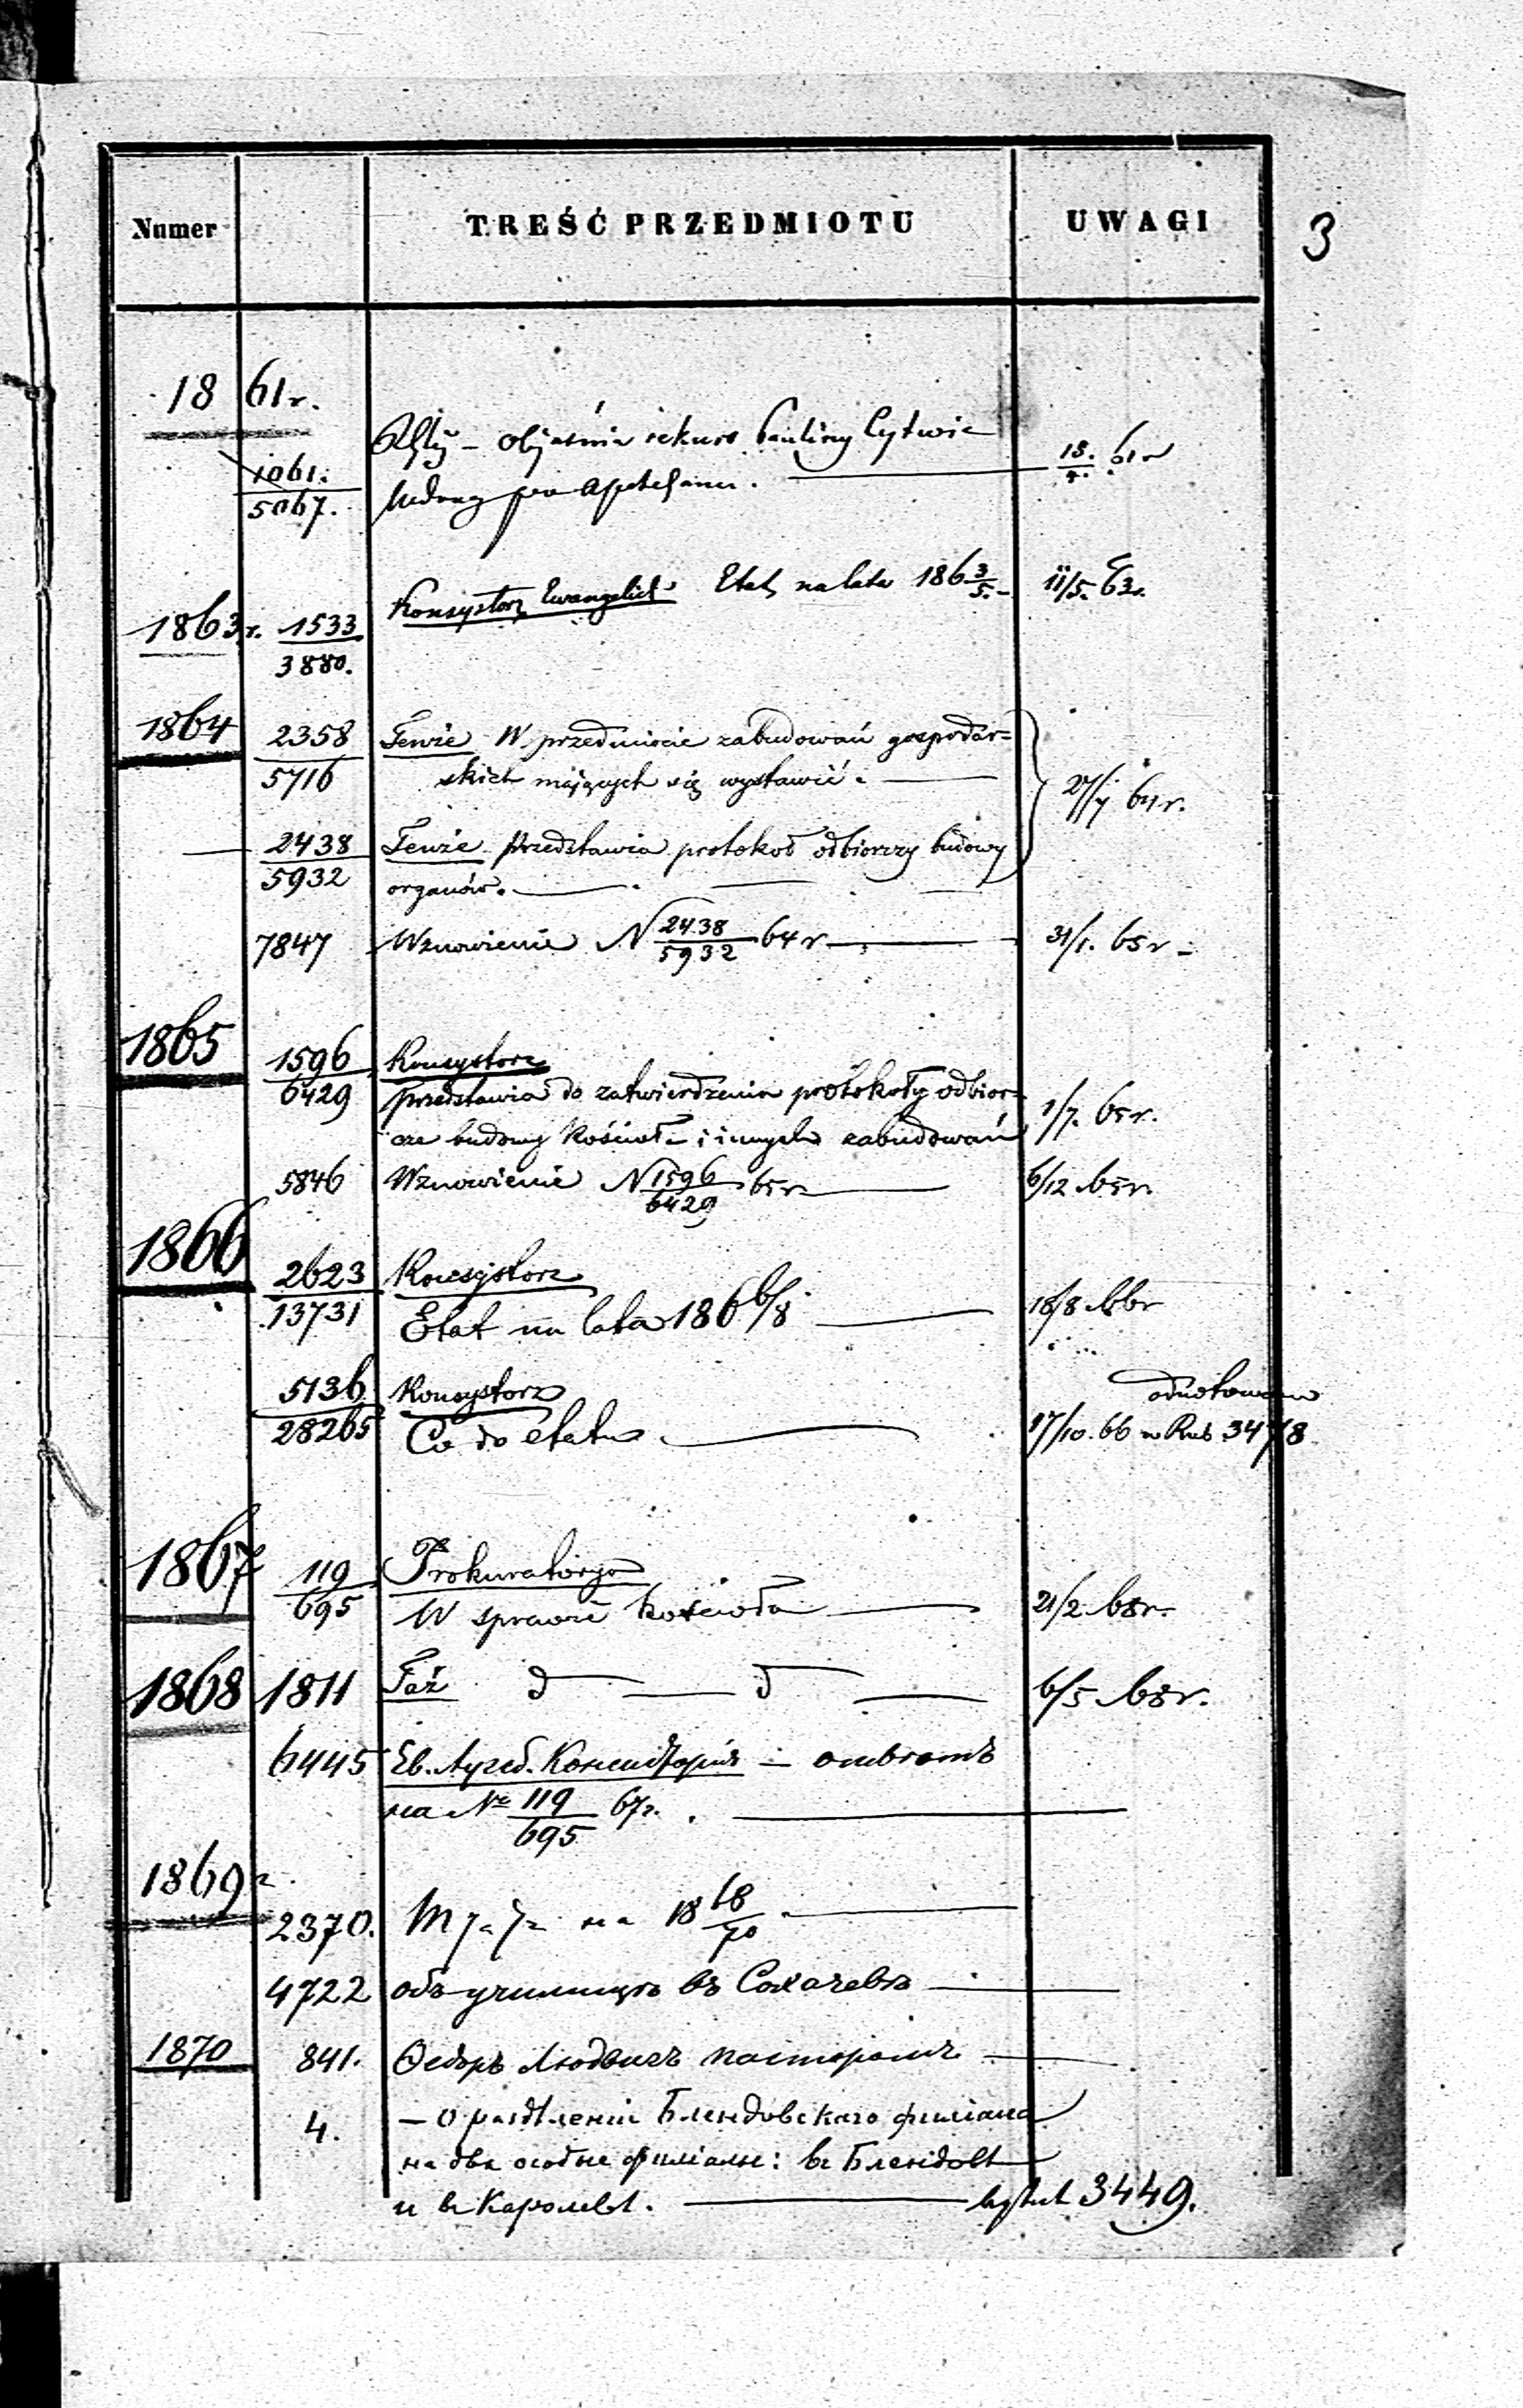 3
Numer TREŚĆ PRZEDMIOTU UWAGI
1861r.
objaśnia rekurs Pauliny
1061. 18/4. 61r
5067.
Konsystorz Ewangelick Etat na lata 186 3/5. 11/5. 63r.
1863r. 1533
3880.
1864 2358 Tenże W przedmiocie zabudowań gospodar=
5716 skich mających się wystawić. 64r.
2438 Tenże Przedstawia protokoł odbiorczy budowy
5932 organów.
7847 Wznowienie N 2438/5932 64r 31/1. 65r
1865
1596 Konsystorz
6429 przedstawia do zatwierdzenia protokoły odbior=
cze budowy Kościoła i innych zabudowań 1/7. 65r.
5846 Wznowienie N 1596/6429 65r 6/12 65r.
1866
2623 Konsystorz
13731 Etat na lata 186 6/8 18/8 66r
5136 Konsystorz odnotowano
28265 Co do etatu 17/10. 66 w Rub 3478
1867 119 Prokuratorya
695 W sprawie kościoła 21/2 68r.
1868 1811 Taż d d 6/5 68r.
6445 Ев. Аугсб. Консисторія – отвѣтъ
на № 119/695 67г.
1869г.
2370. на 18 68/70
4722 объ училищѣ въ Сохачевѣ
1870 841. Ѳедоръ Людвигъ пасторомъ
4. – О раздѣленіи Блендовскаго филіала
на два особые филіалы: въ Блендовѣ
и въ Каролевѣ. 3449.